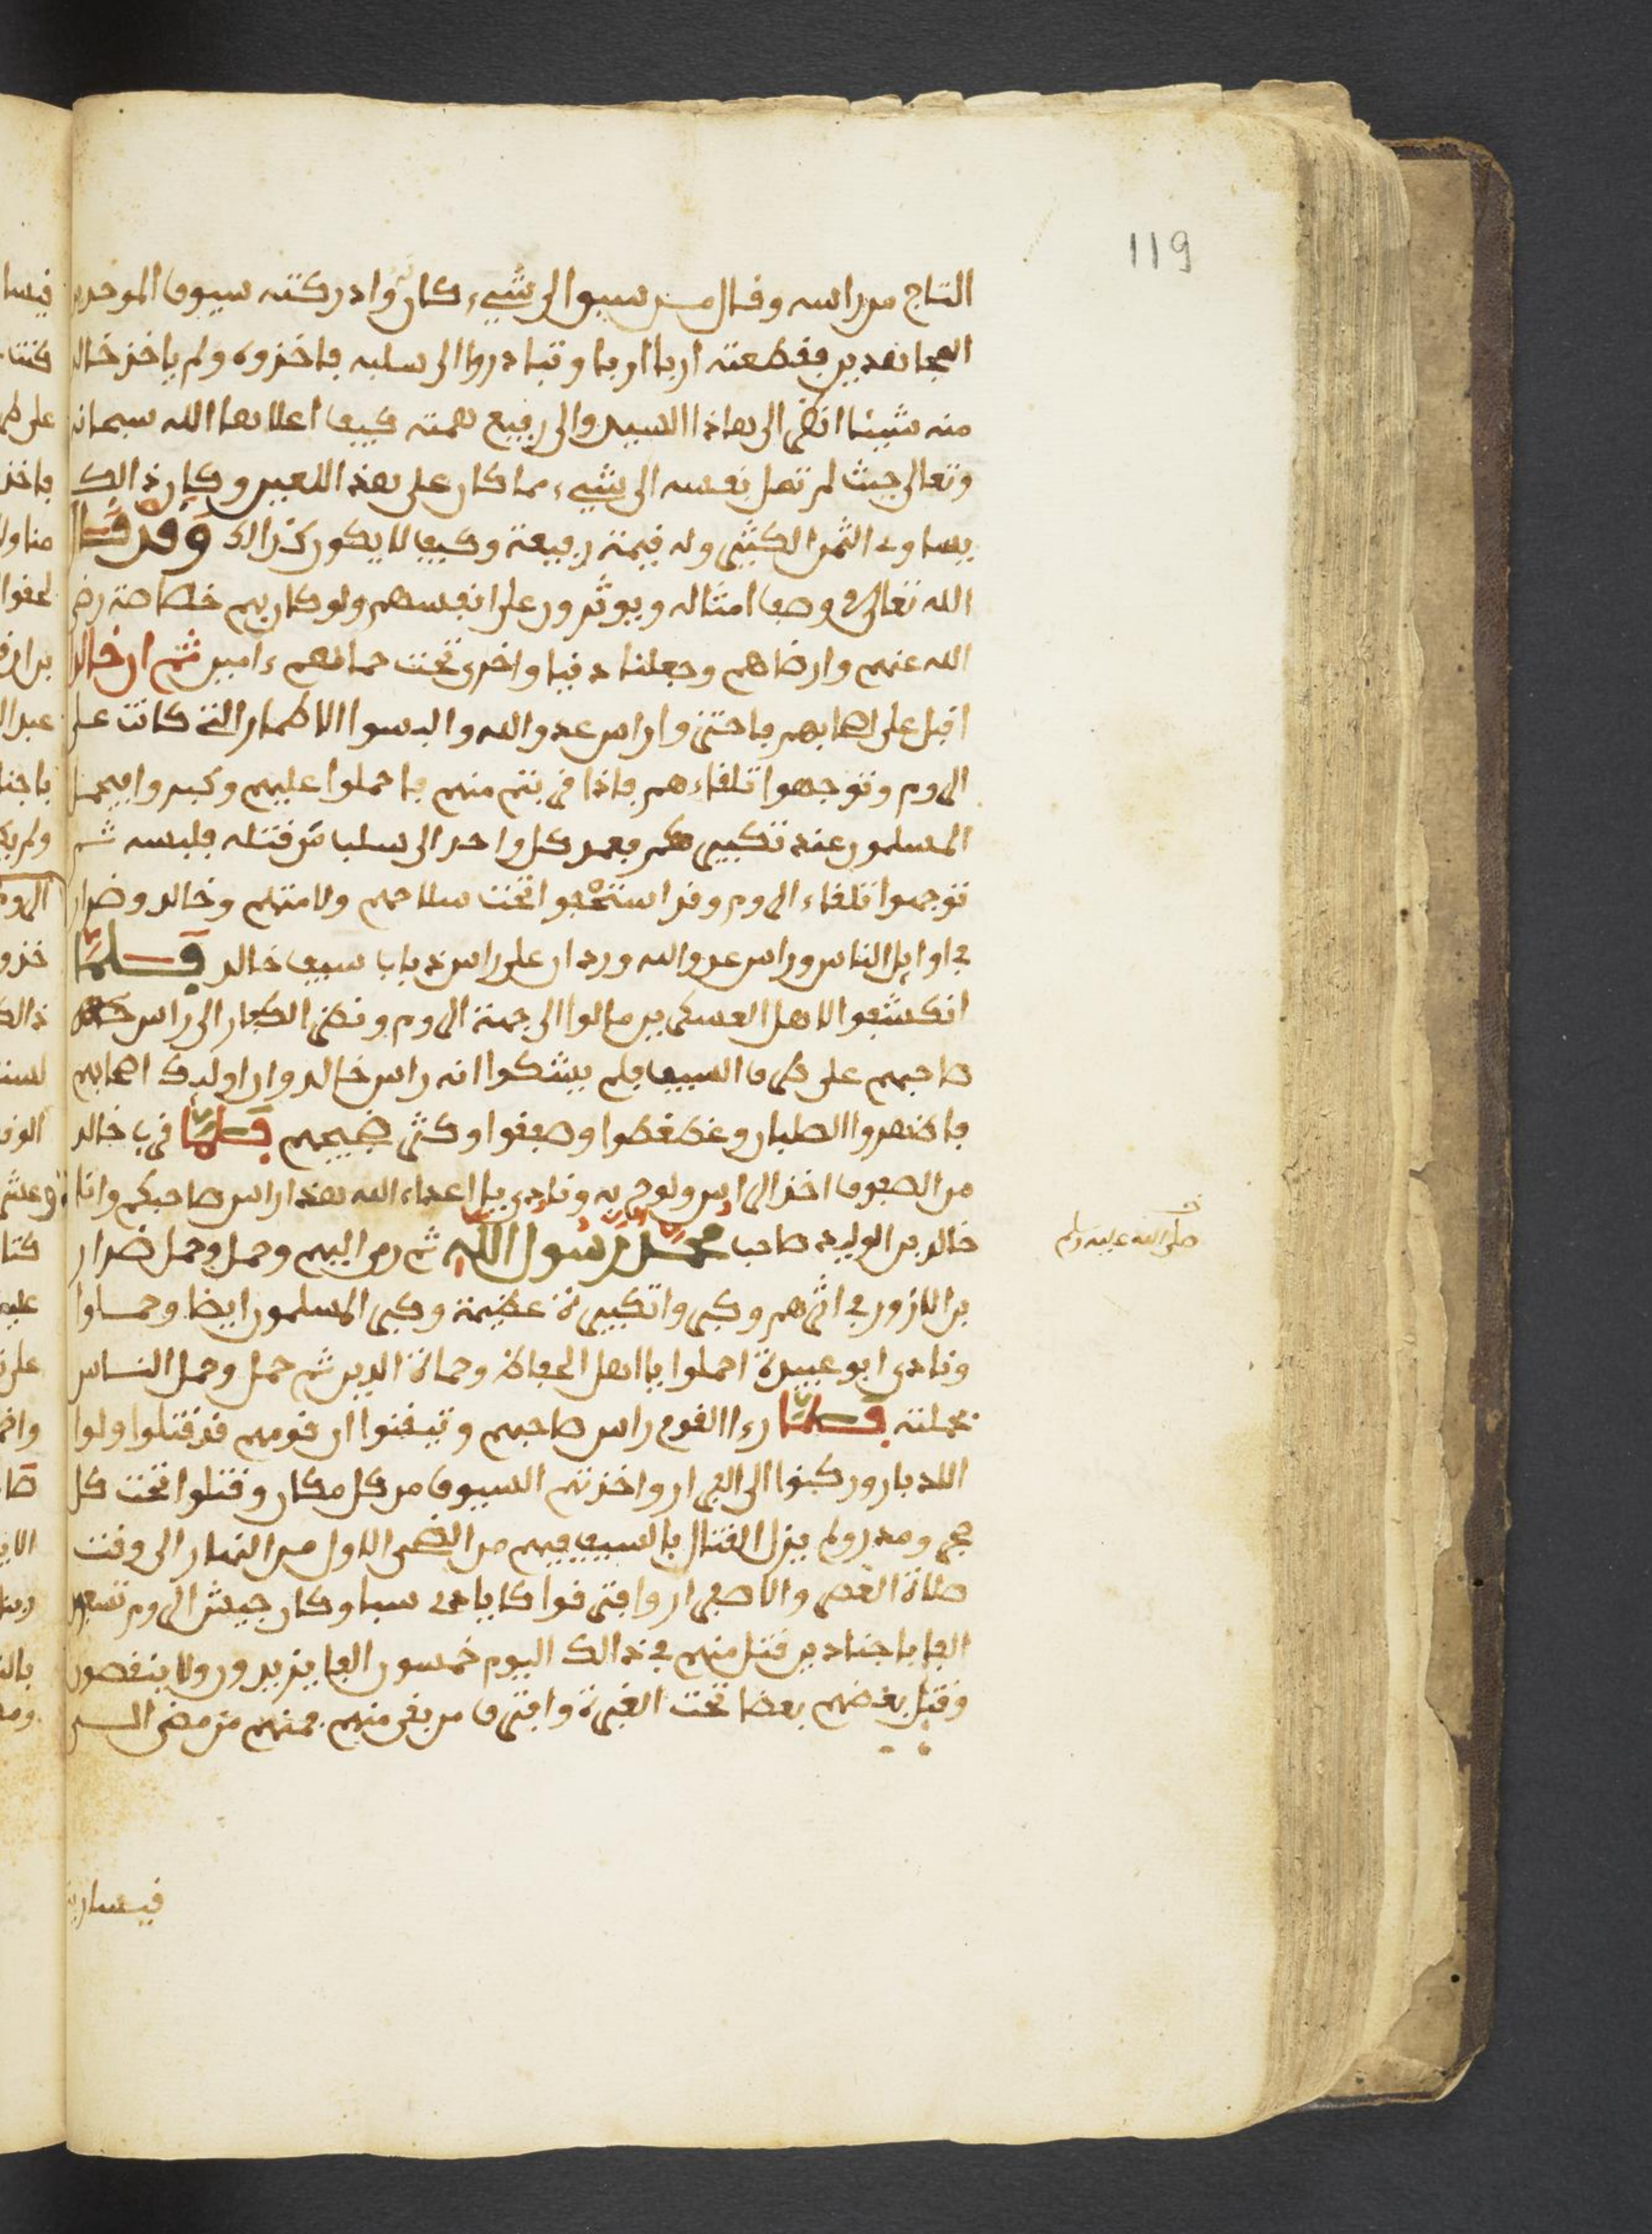 119
التاج من راسه وقال من سبوا الى شيء كان له وادركته سيوف الموحدين
المجاهدين فقطعته اربا اربا وتبادروا الى سلبه فاخذوه ولم ياخذ خالد
منه شيئا انظر الى هاذا السيد والى رفيع همته كيف اعلاها الله سبحانه
وتعالى حيث لم تمل نفسه الى شيء مما كان على هذا اللعين وكان ذالك
يساوي الثمن الكثير وله قيمة رفيعة وكيف لا يكون كذالك وقد قال
الله تعالى في وصف امثاله ويوثرون على انفسهم ولو كان بهم خصاصة رضي
الله عنهم وارضاهم وجعلنا دنيا واخرى تحت حماهم ءامين ثم ان خالد
اقبل على اصحابهم فاحتزوا راس عدو الله والبسوا الاطمار التي كانت على
الروم وتوجهوا تلقاءهم فاذا قربتم منهم فاحملوا عليهم وكبروا فيحمل
المسلمون عند تكبيركم فعمد كل واحد الى سلب من قتله فلبسه ثم
توجهوا تلقاء الروم وقد استخفوا تحت سلاحهم ولامتهم وخالد وضرار
في اوايل الناس وراس عدو الله وردان على راس ذباب سيف خالد فلما
انكشفوا لاهل العسكرين مالوا الى جهة الروم ونظر الكفار الى راس
صاحبهم على طرف السيف فلم يشكوا انه راس خالد وان اوليك اصحابهم
فاظهروا الصلبان وغطغطوا وصفقوا وكثر ضجيجهم فلما قرب خالد
من الصفوف اخذ الراس ولوح به ونادى يا اعداء الله هذا راس صاحبكم وانا
خالد بن الوليد صاحب محمد رسول الله ثم رمى اليهم وحمل وحمل ضرار
صلى الله عليه وسلم
بن الازور في اثرهم وكبروا تكبيرة عظيمة وكبر المسلمون ايضا وحملوا
ونادى ابو عبيدة احملوا يا اهل الحفاظ وحماة الدين ثم حمل وحمل الناس
بحملته فلما رءا القوم راس صاحبهم وتيقنوا ان قومهم قد قتلوا ولوا
الادبار وركنوا الى الفرار واخذتهم السيوف من كل مكان وقتلوا تحت كل
حجر ومدر ولم يزل القتال بالسيف فيهم من الضحى الاول من النهار الى وقت
صلاة العصر والاصفرار وافترقوا كايادي سبا وكان جيش الروم تسعين
الفا باجنادين قتل منهم في ذالك اليوم خمسون الفا يزيدون ولا ينقصون
وقتل بعضهم بعضا تحت الغبرة وافترق من بقي منهم فمنهم من مضى الى
قيسارية